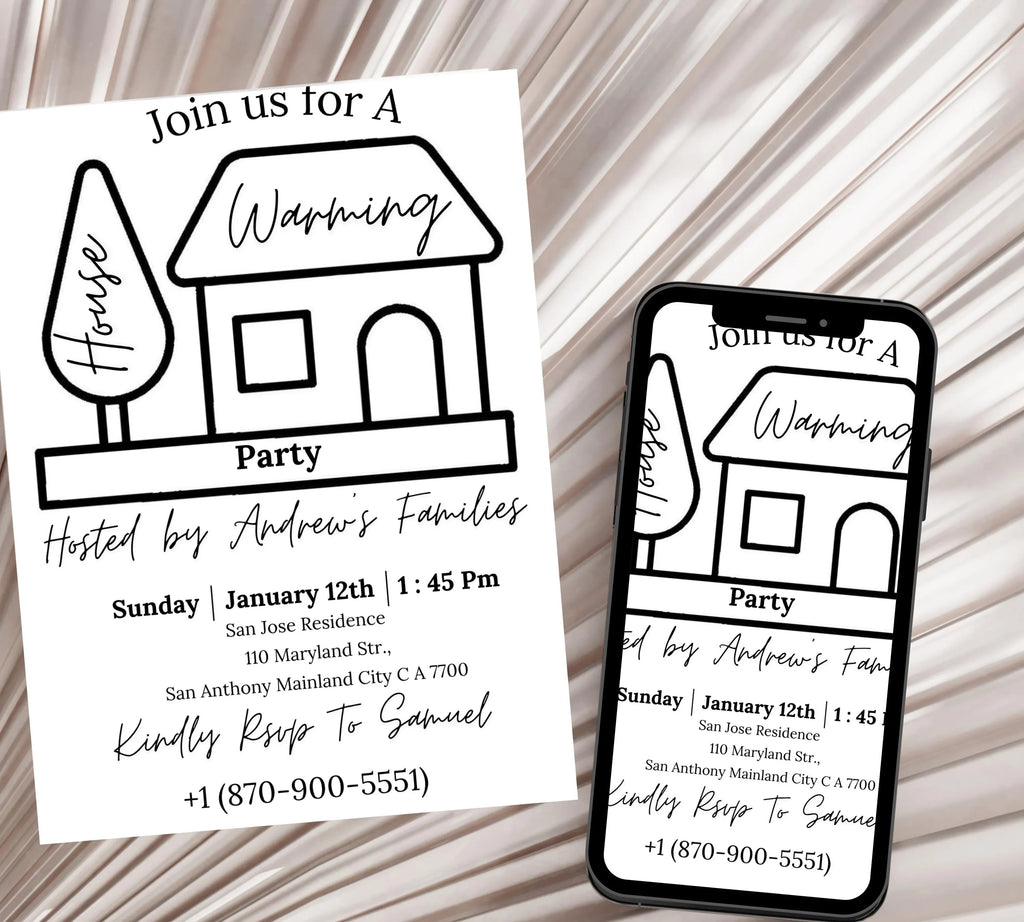 Join us for A
Warming
House
Party
Hosted by Andrew's Families
Sunday | January 12th | 1 : 45 Pm
San Jose Residence
110 Maryland Str.,
San Anthony Mainland City C A 7700
Kindly Rsvp To Samuel
+1 (870-900-5551)
Join us for A
Warming
House
Party
ed by Andrew's Fam
Sunday | January 12th | 1 : 45 P
San Jose Residence
110 Maryland Str.,
San Anthony Mainland City C A 7700
Kindly Rsvp To Samue
+1 (870-900-5551)